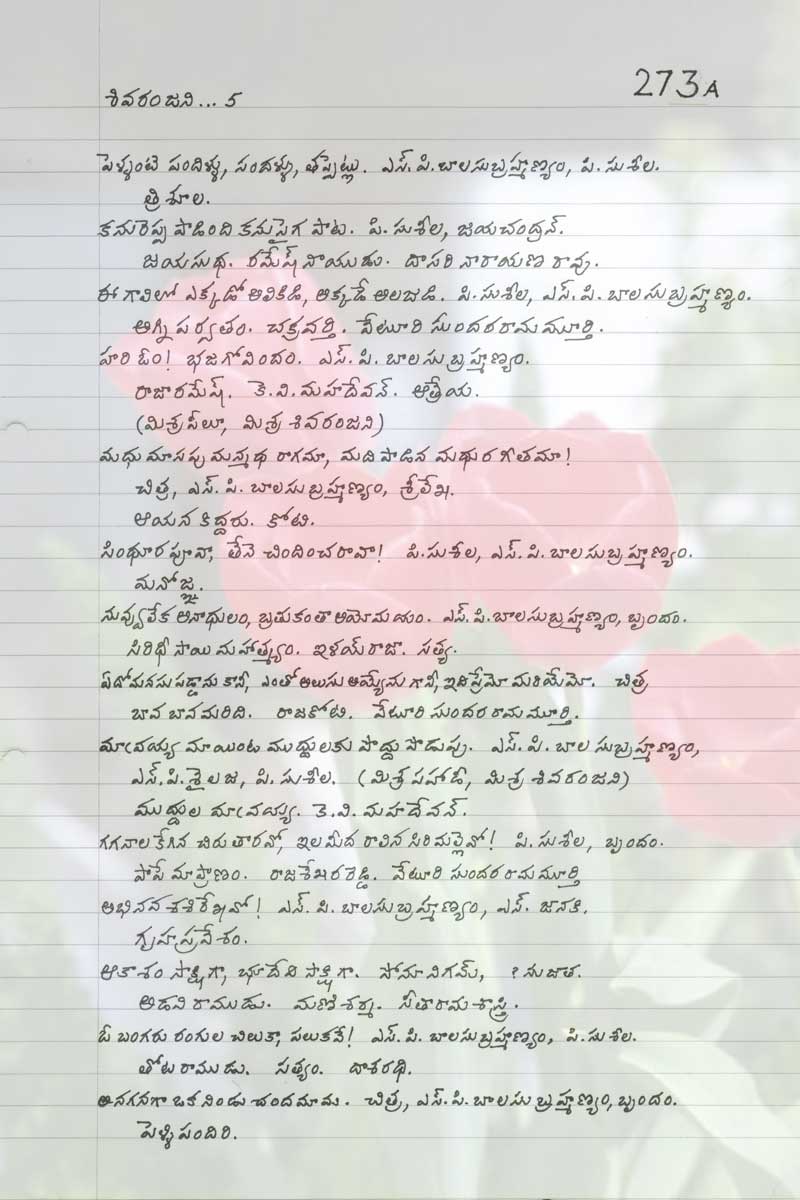 273A
శివరంజని... 5
పెళ్ళంటే పందిళ్ళు, సందళ్ళు, తప్పెట్లు. ఎస్.పి.బాలసుబ్రహ్మణ్యం, పి.సుశీల.
త్రిశూల.
కనురెప్ప పాడింది కనుసైగ పాట. పి.సుశీల, జయచంద్రన్.
జయసుధ. రమేష్ నాయుడు. దాసరి నారాయణ రావు.
ఈ గాలిలో ఎక్కడో అలికిడి, అక్కడే అలజడి. పి.సుశీల, ఎస్.పి.బాలసుబ్రహ్మణ్యం.
అగ్ని పర్వతం. చక్రవర్తి. వేటూరి సుందరరామమూర్తి.
హరి ఓం! భజగోవిందం. ఎస్.పి.బాలసుబ్రహ్మణ్యం.
రాజా రమేష్. కె.వి.మహదేవన్. ఆత్రేయ.
(మిశ్రపీలూ, మిశ్ర శివరంజని)
మధుమాసపు మన్మథ రాగమా, మది పాడిన మధుర గీతమా!
చిత్ర, ఎస్.పి.బాలసుబ్రహ్మణ్యం, శ్రీలేఖ.
ఆయనకిద్దరు. కోటి.
సింధూర పూవా, తేనె చిందించరావా! పి.సుశీల, ఎస్.పి.బాలసుబ్రహ్మణ్యం.
మనోజ్ఞ.
నువ్వులేక అనాథులం, బ్రతుకంతా అయోమయం. ఎస్.పి.బాలసుబ్రహ్మణ్యం, బృందం.
సిరిధీ సాయి మహాత్మ్యం. ఇళయ్‌రాజా. సత్య.
ఏదో మనసు పడ్డాను కానీ, ఎంతో అలుసు అయ్యేను గానీ, ఇది ప్రేమో మరియేమో. చిత్ర
బావ బావమరిది. రాజకోటి. వేటూరి సుందరరామమూర్తి.
మాఁవయ్య మాయింట ముద్దులకు పొద్దు పొడుపు. ఎస్.పి.బాలసుబ్రహ్మణ్యం,
ఎస్.పి.శైలజ, పి.సుశీల. (మిశ్ర పహాడీ, మిశ్ర శివరంజని)
ముద్దుల మాఁవయ్య. కె.వి.మహదేవన్.
గగనాల కేగిన చిరు తారవో, ఇల మీద రాలిన సిరిమల్లెవో! పి.సుశీల, బృందం.
పాపే మా ప్రాణం. రాజశేఖరరెడ్డి. వేటూరి సుందరరామమూర్తి
అభినవ శశిరేఖవో! ఎస్.పి.బాలసుబ్రహ్మణ్యం, ఎస్.జానకి.
గృహప్రవేశం.
ఆకాశం సాక్షిగా, భూదేవి సాక్షిగా. సోనూనిగమ్, ? సుజాత.
అడవి రాముడు. మణిశర్మ. సీతారామశాస్త్రి.
ఓ బంగరు రంగుల చిలుకా, పలుకవే! ఎస్.పి.బాలసుబ్రహ్మణ్యం, పి.సుశీల.
తోటరాముడు. సత్యం. దాశరథి.
అనగనగా ఒక నిండు చందమామ. చిత్ర, ఎస్.పి.బాలసుబ్రహ్మణ్యం, బృందం.
పెళ్ళి పందిరి.